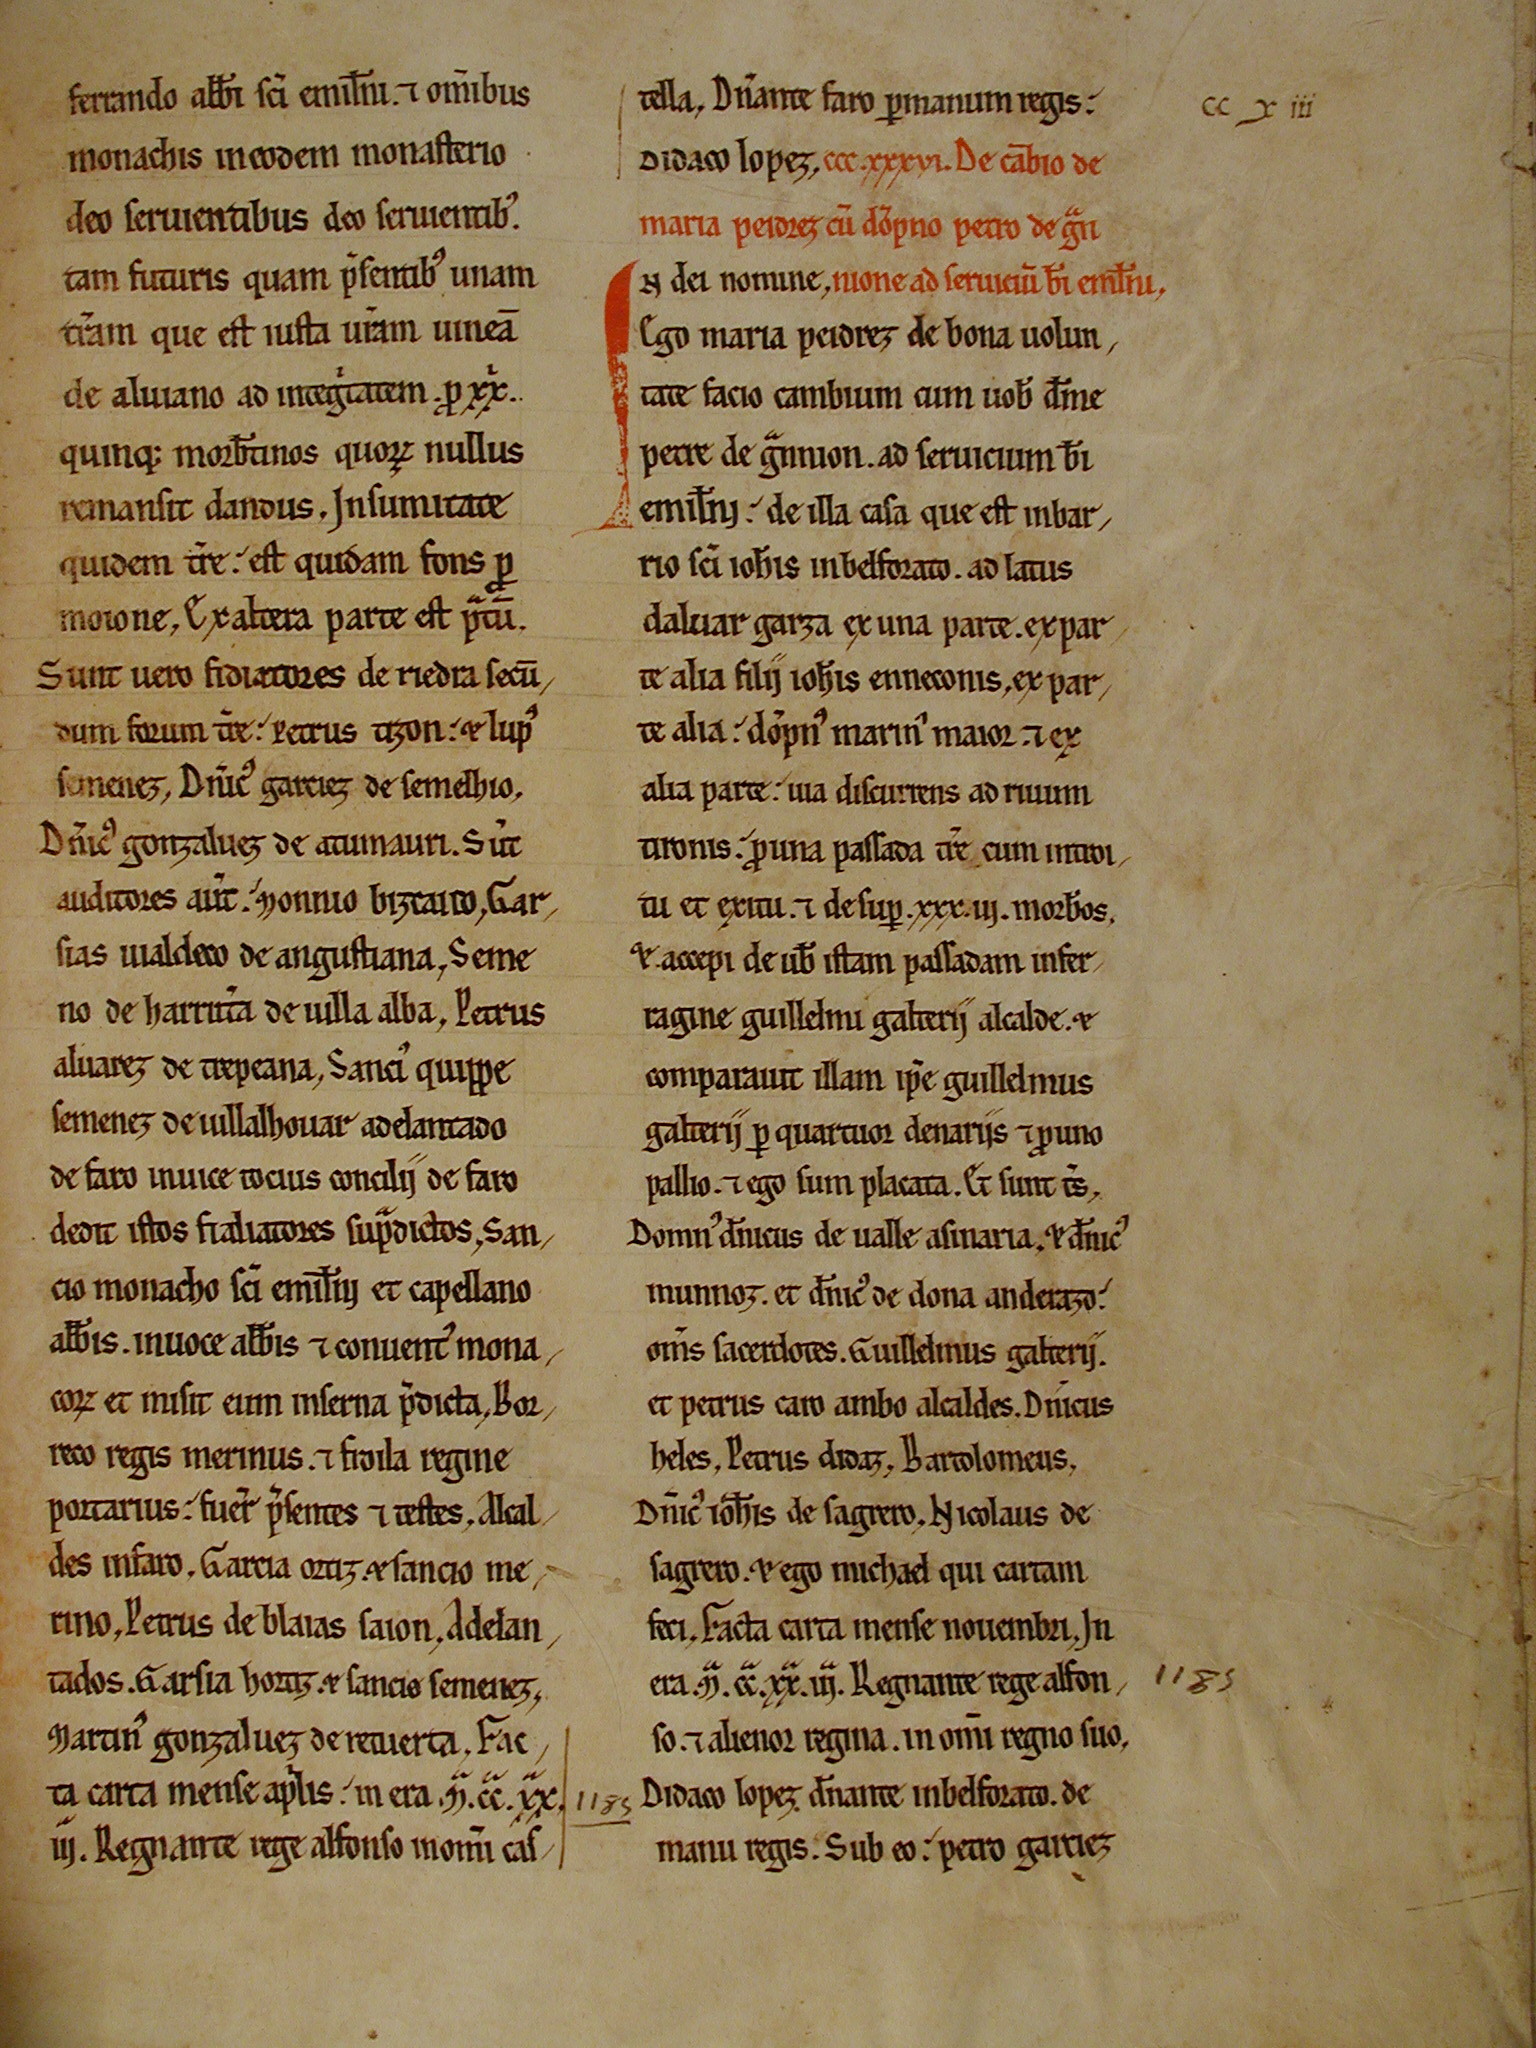 ferrando abb̅i sc̅i emil̅iu. ⁊ om̅ibus
monachis in eodem monasterio
deo seruientibus deo seruientib᾽.
tam futuris quam p̅sentib᾽ unam
tr̅am que est iusta ur̅am uineā
de aluiano ad integ̅tatem. p xx.
quinq; morb̅tinos quoꝝ nullus
remansit dandus. In sumitate
quidem tr̅e: est quidam fons p
moione, Ex altera parte est p̅tū.
Sunt uero fidiatores de riedra secū,
dum forum tr̅e: Petrus tizon: & lup᾽
semenez, Dn̅ic᾽ garciez de semelhio,
Dn̅ic᾽ gonzaluez de atumauri. Sūt
auditores aūt: Monnio bizcaito, Gar,
sias uialdeco de angustiana, Seme
no de harrīta de uilla alba, Petrus
aluarez de trepeana, Sanci᾽ quippe
semenez de uillalhouar adelantado
de faro in uice tocius concilij de faro
dedit istos fialiatores sup̅dictos, San,
cio monacho sc̅i emil̅ij et capellano
abb̅is. in uoce abb̅is ⁊ conuent᾽ mona,
coꝝ et misit eum in serna p̅dicta, Bor,
reco regis merinus. ⁊ froila regine
portarius: fuer̅ p̅sentes ⁊ testes, Alcal,
des in faro. Garcia ortiz. & sancio me,
rino, Petrus de blaias saion, Adelan,
tados. Garsia hortiz. & sancio semenez,
Martin᾽ gonzaluez de retuerta, Fac,
ta carta mense ap̅lis: in era .M̃. cc̃. xx̃.
iij. Regnante rege alfonso in om̅i cas,
1185
tella, Dn̅ante faro p manum regis:
Didaco lopez, ccc.xxxvi. De cābio de
maria peidrez cū dōpno petro de g̅n
In dei nomine, nione ad seruiciū b̅i emil̅iu,
Ego maria peidrez de bona uolun,
tate facio cambium cum uob̅ dn̅e
petre de g̅nnion. ad seruicium b̅i
emil̅ij: de illa casa que est in bar,
rio sc̅i ioh̅is in belforato. ad latus
daluar garza ex una parte. ex par,
te alia filij ioh̅is enneconis, ex par,
te alia: dōpn᾽ marin᾽ maior. ⁊ ex
alia parte: uia discurrens ad riuum
tironis: p una passada tr̅e cum introi,
tu et exitu. ⁊ de sup. xxx.iij. morb̅os,
& accepi de ub̅ istam passadam in fer,
ragine guillelmi galterij alcalde. &
comparauit illam ip̅e guillelmus
galterij p quartuor denarijs ⁊ p uno
pallio. ⁊ ego sum placata. Et sunt t̅s,
Domn᾽ dn̅icus de ualle asinaria, & dn̅ic᾽
munnoz. et dn̅ic᾽ de dona anderazo:
om̅s sacerdotes. Guillelmus galterij.
et petrus caro ambo alcaldes. Dn̅icus
heles, Petrus didaz, Bartolomeus,
Dn̅ic᾽ ioh̅is de sagrero, Nicolaus de
sagrero. & ego michael qui cartam
feci, Facta carta mense nouembri, In
era .M̃. cc̃. xx̃. iij. Regnante rege alfon,
so. ⁊ alienor regina. in om̅i regno suo,
Didaco lopez dn̅ante in belforato. de
manu regis. Sub eo: petro garciez
cc x iii
1185